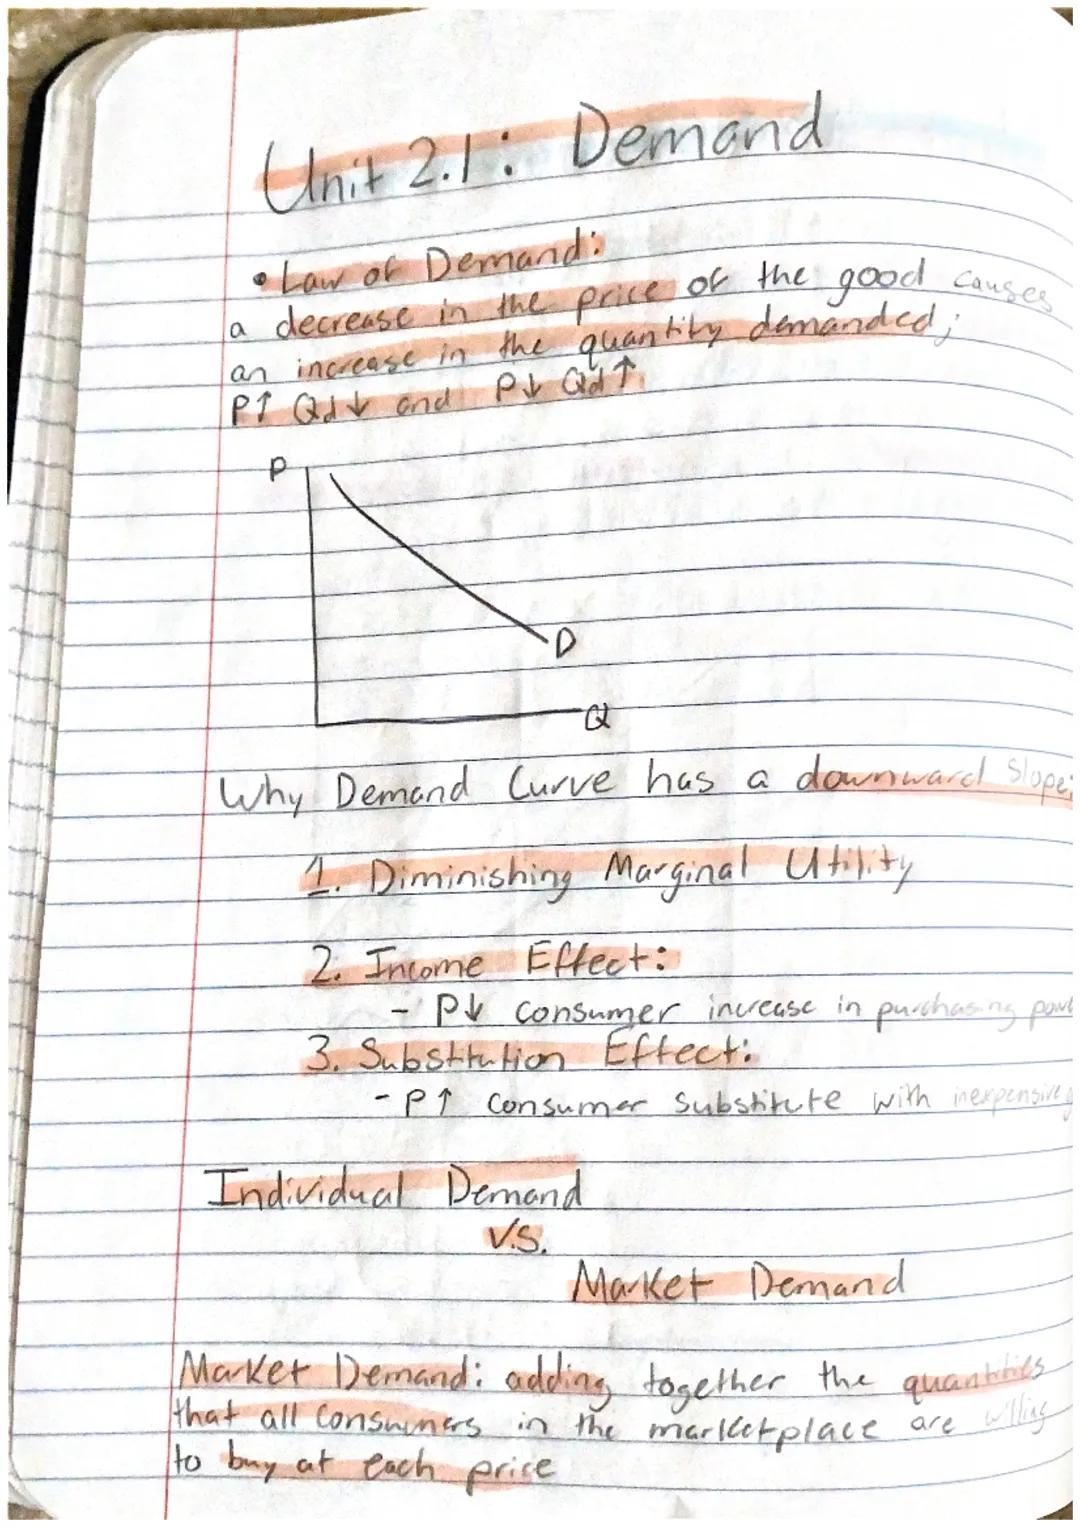 Unit 2.1: Demand
• Law of Demand:
a decrease in the price of the good causes
an increase in the quantity demanded;
P↑ Qd↓ and P↓ Qd↑
P
D
Q
Why Demand Curve has a downward Slope:
1. Diminishing Marginal Utility
2. Income Effect:
- P↓ consumer increase in purchasing
3. Substitution Effect:
- P↑ consumer substitute with inexpensive
Individual Demand
V.S.
Market Demand
Market Demand: adding together the quantities
that all consumers in the marketplace are willing
to buy at each price